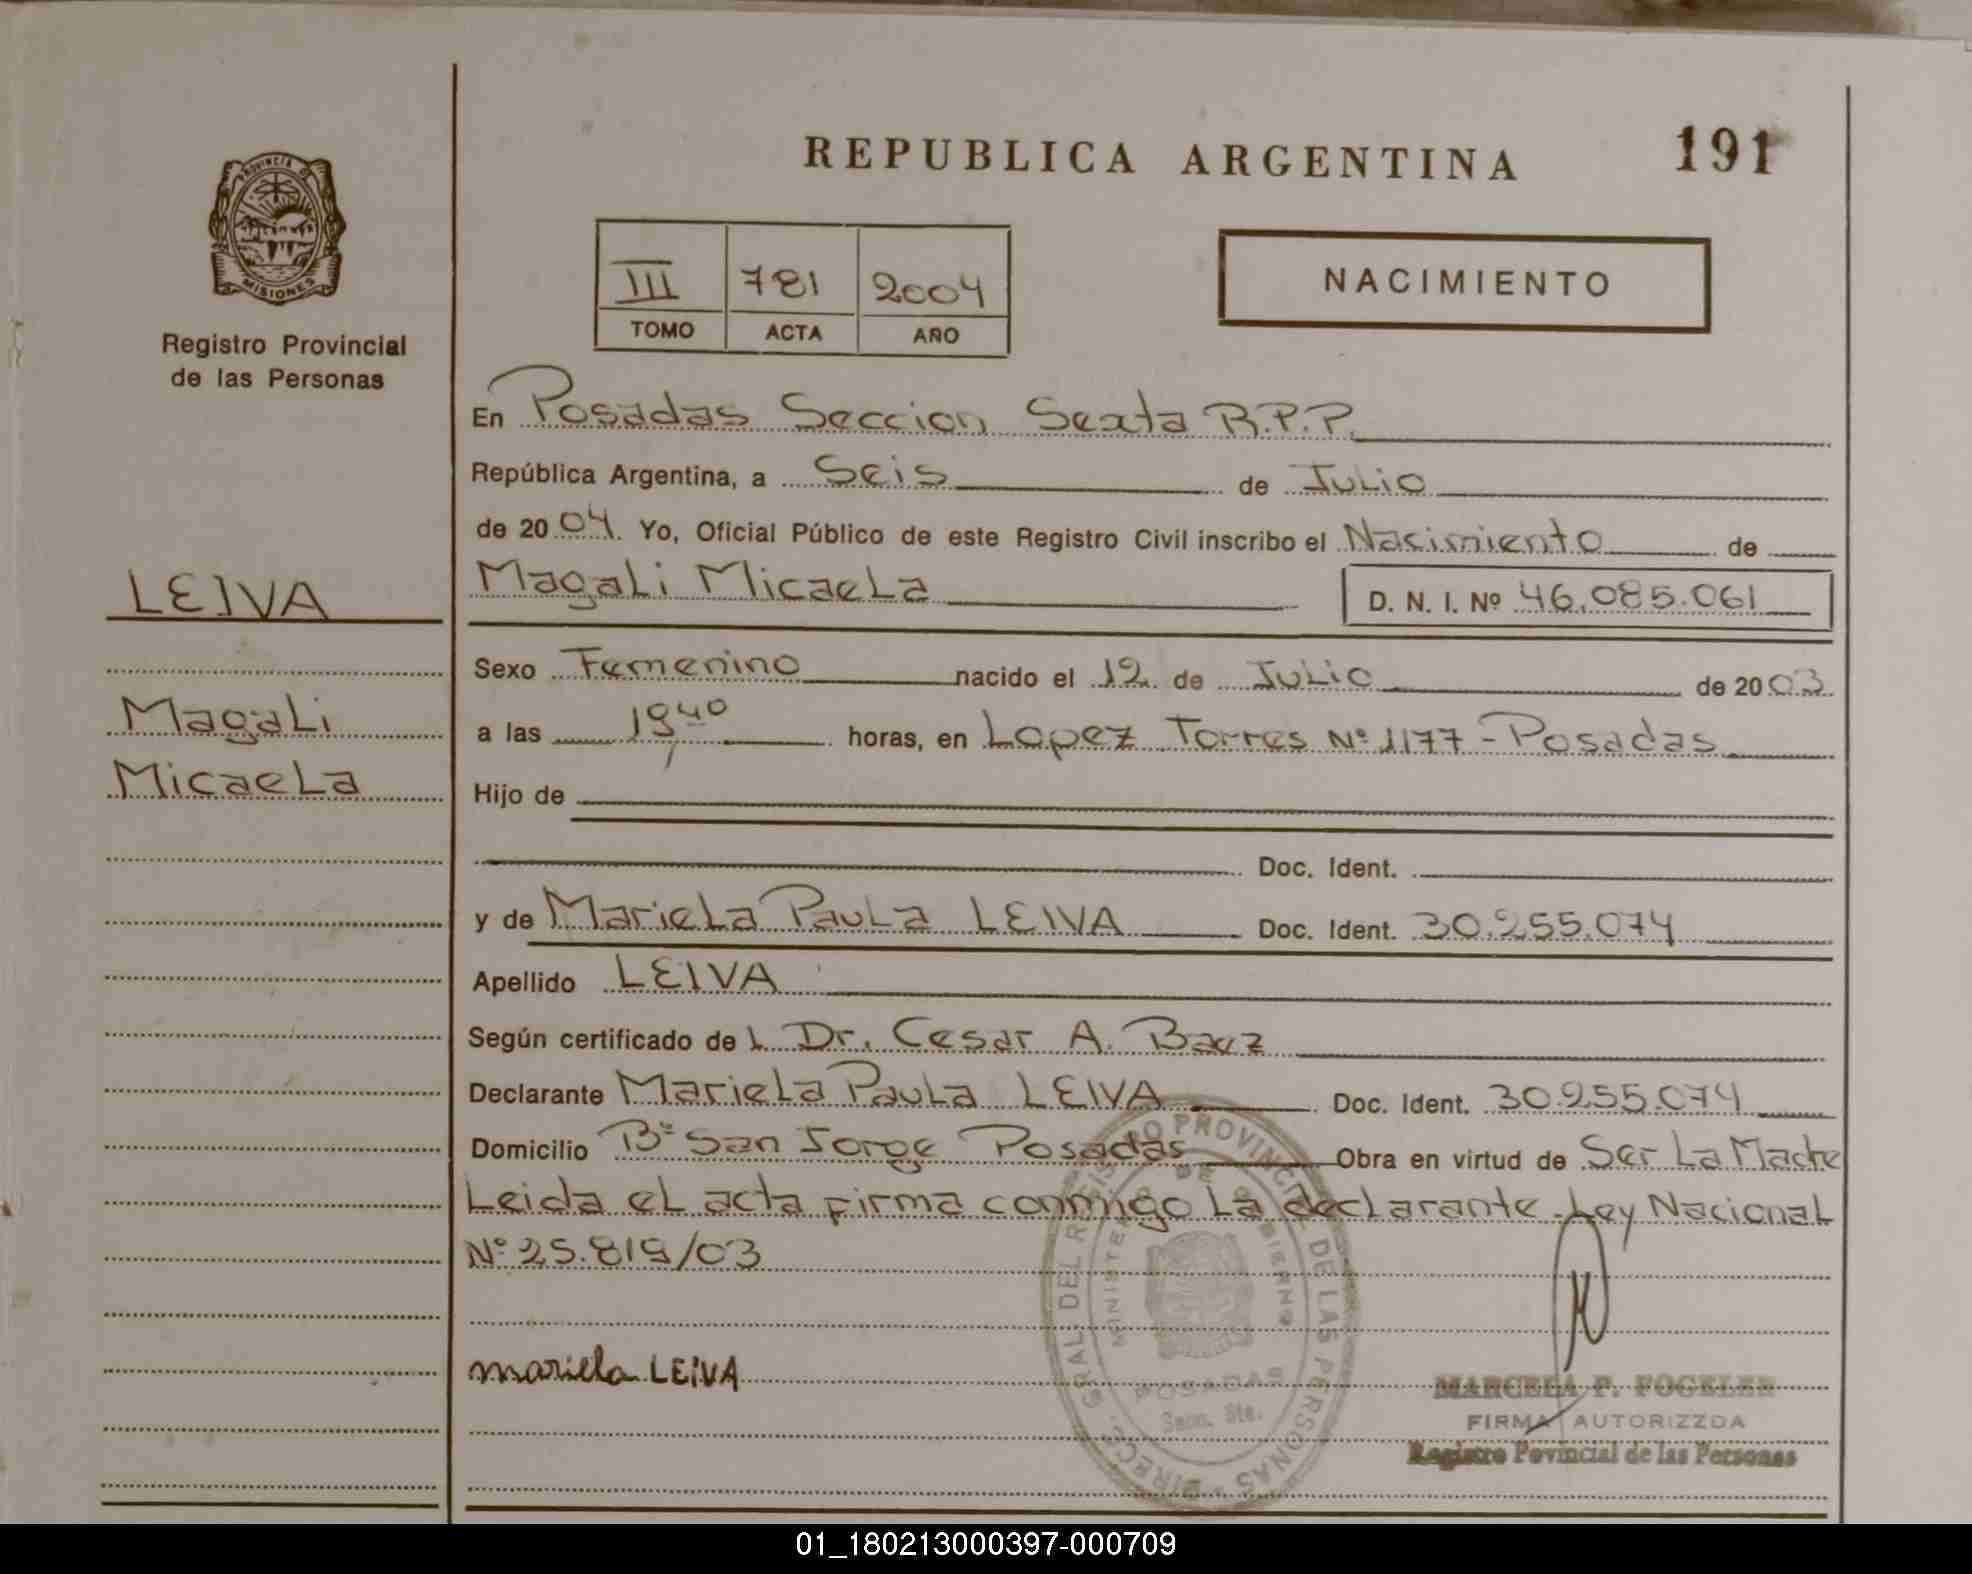 REPUBLICA ARGENTINA
191
PROVINCIA DE
MISIONES
Registro Provincial
de las Personas
III 781 2004
TOMO ACTA AÑO
NACIMIENTO
LEIVA
Magali
Micaela
En Posadas Seccion Sexta R.P.P.
República Argentina, a Seis de Julio
de 2004. Yo, Oficial Público de este Registro Civil inscribo el Nacimiento de
Magali Micaela D. N. I. Nº 46.085.061
Sexo Femenino nacido el 12 de Julio de 2003
a las 19,40 horas, en Lopez Torres Nº 1177 - Posadas
Hijo de
Doc. Ident.
y de Mariela Paula LEIVA Doc. Ident. 30.255.074
Apellido LEIVA
Según certificado del Dr. Cesar A. Baez
Declarante Mariela Paula LEIVA Doc. Ident. 30.255.074
Domicilio Bº San Jorge Posadas Obra en virtud de Ser La Madre
Leida el acta firma conmigo La declarante. Ley Nacional
Nº 25.819/03
mariela LEIVA
DIRECC. GRAL. DEL REGISTRO PROVINCIAL DE LAS PERSONAS
MINISTERIO DE GOBIERNO
POSADAS
Secc. 6ta.
MARCELA P. FOGELER
FIRMA AUTORIZZDA
Registro Povincial de las Personas
01_180213000397-000709